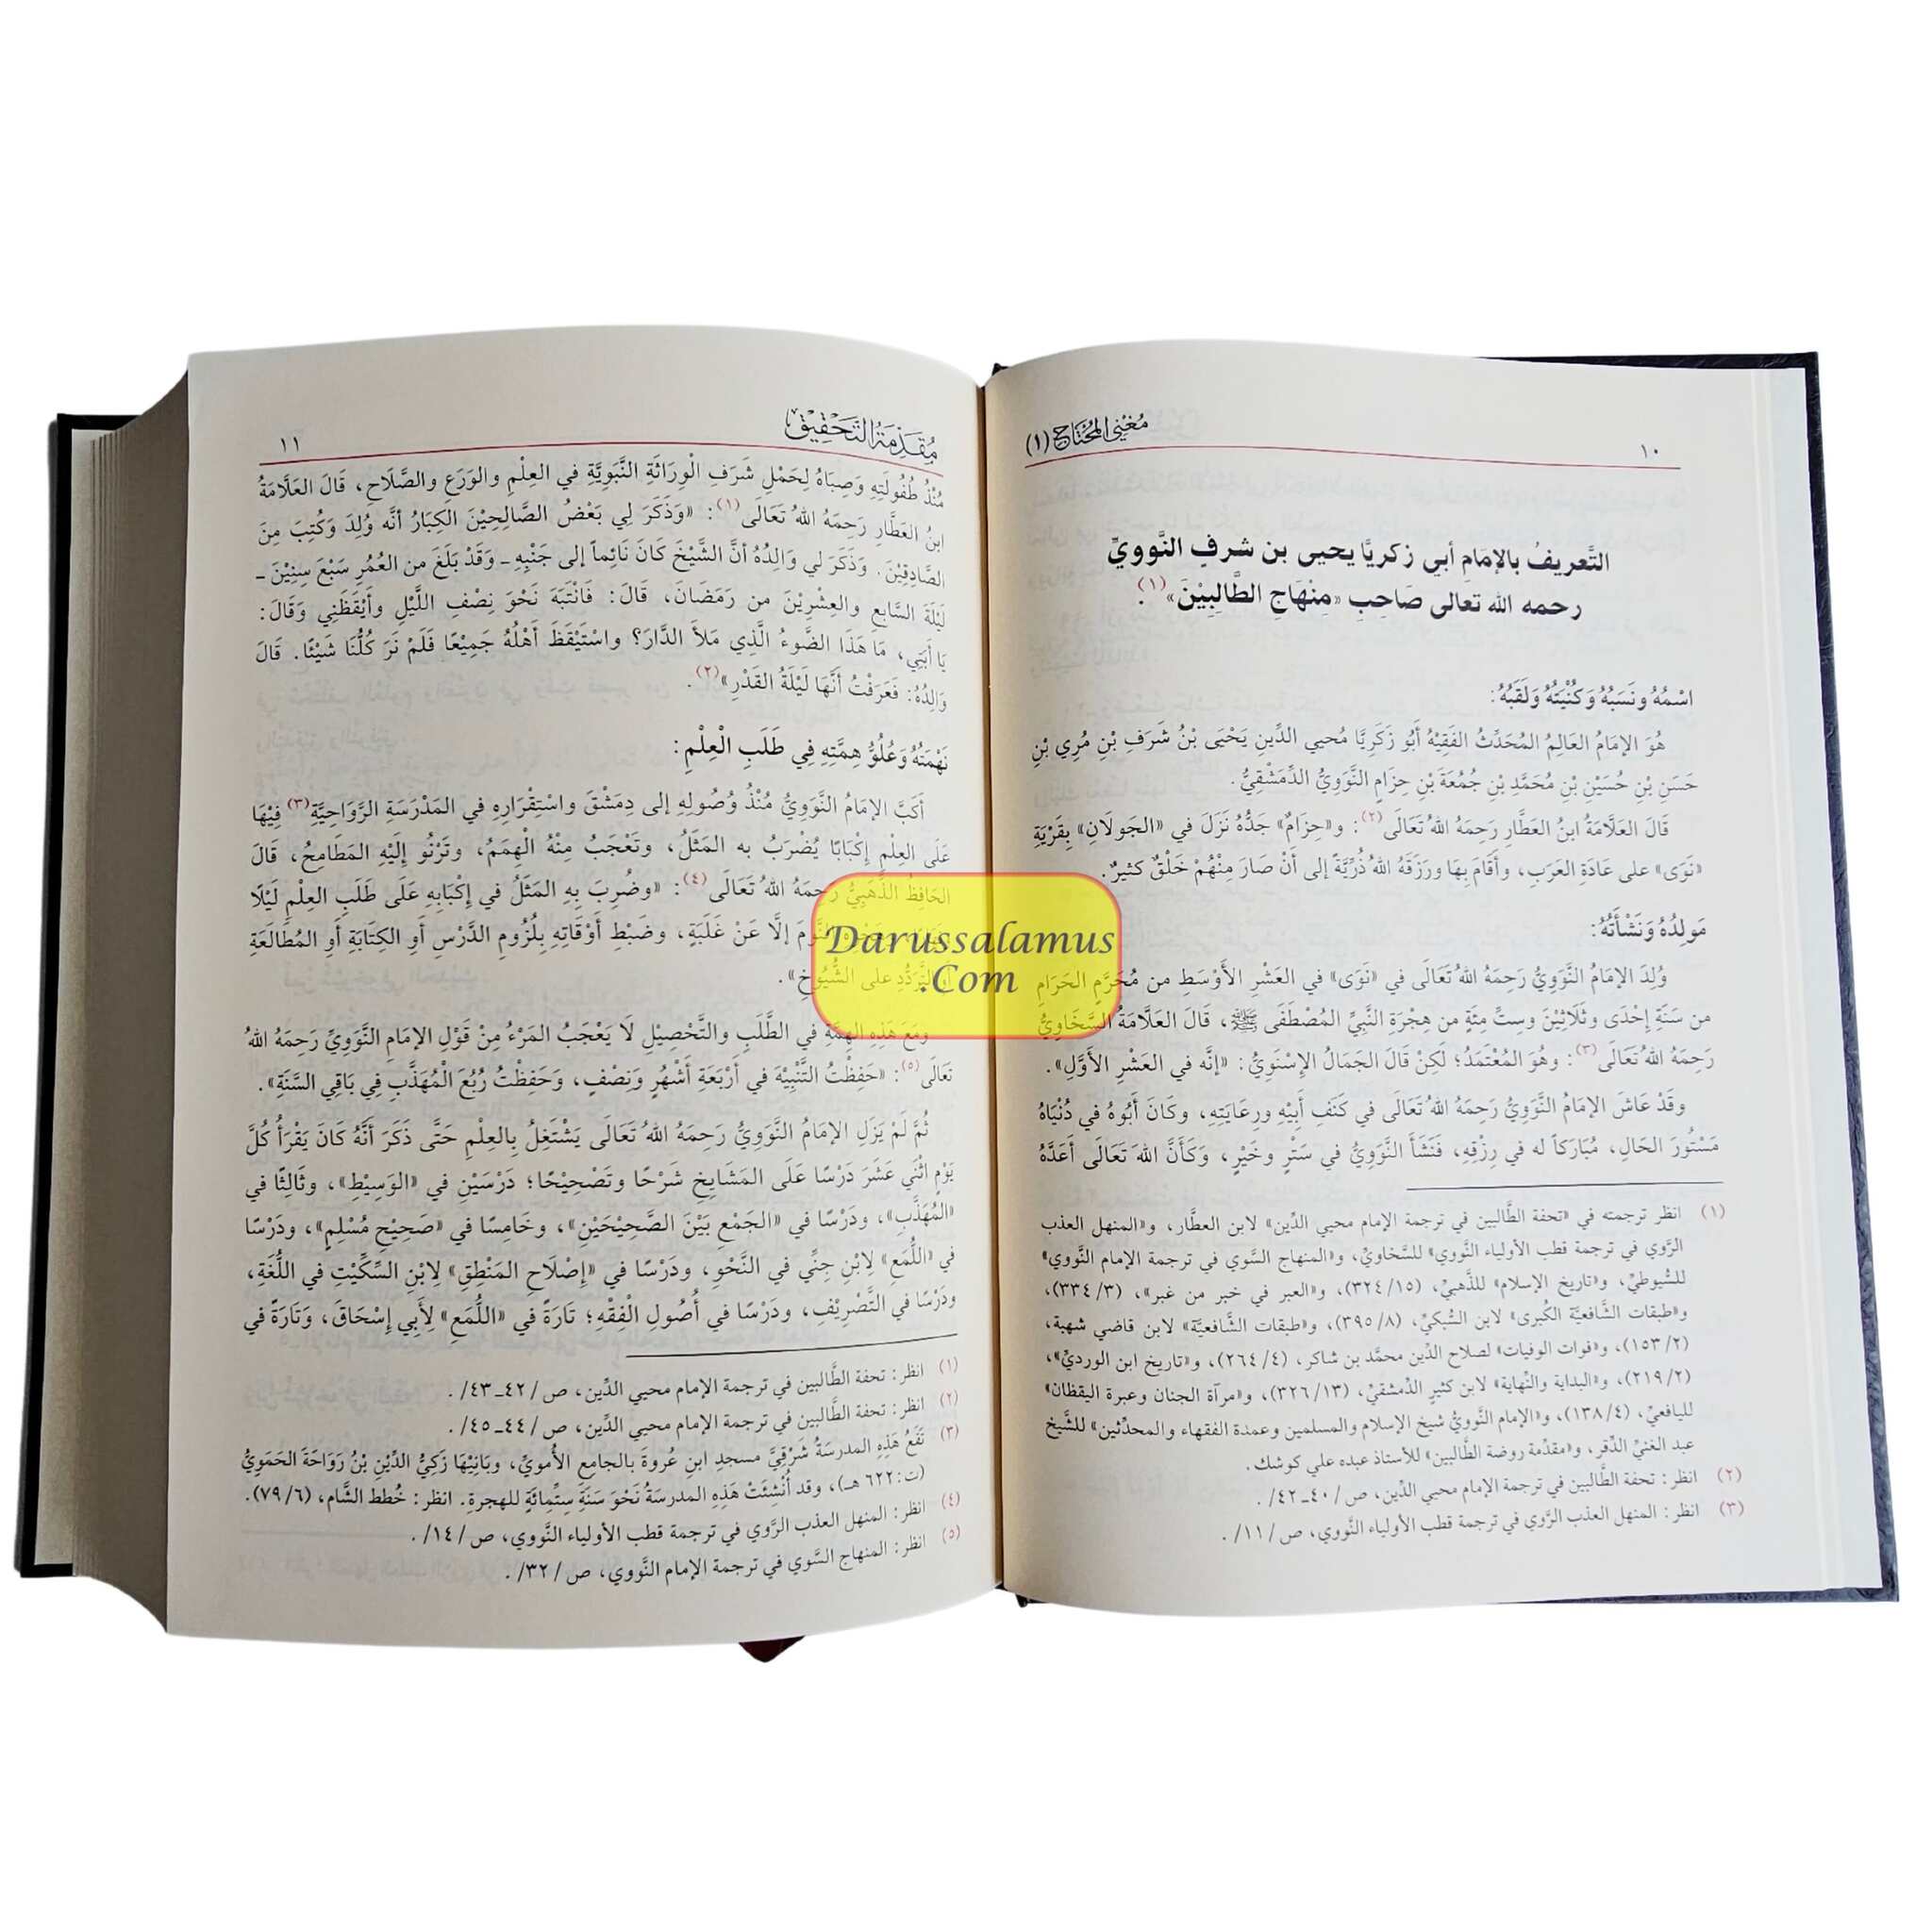 مُغْنِي المُحْتَاجِ (١)
١٠
التَّعريفُ بالإمَامِ أبي زكريَّا يحيى بن شرفٍ النَّوويِّ
رحمه الله تعالى صَاحِبِ «مِنْهَاجِ الطَّالِبِيْنَ»(١).
اسْمُهُ وَنَسَبُهُ وَكُنْيَتُهُ وَلَقَبُهُ:
هُوَ الإمَامُ العَالِمُ المُحَدِّثُ الفَقِيْهُ أَبُو زَكَرِيَّا مُحيي الدِّينِ يَحْيَى بْنُ شَرَفِ بْنِ مُرِي بْنِ
حَسَنِ بْنِ حُسَيْنِ بْنِ مُحَمَّدِ بْنِ جُمُعَةَ بْنِ حِزَامٍ النَّوَوِيُّ الدِّمَشْقِيُّ.
قَالَ العَلَّامَةُ ابنُ العَطَّارِ رَحِمَهُ اللهُ تَعَالَى(٢): و«حِزَامٌ» جَدُّهُ نَزَلَ في «الجَولَانِ» بِقَرْيَةِ
«نَوَى» على عَادَةِ العَرَبِ، وأقَامَ بِهَا ورَزَقَهُ اللهُ ذُرِّيَّةً إلى أنْ صَارَ مِنْهُمْ خَلْقٌ كثيرٌ.
مَولِدُهُ وَنَشْأَتُهُ:
وُلِدَ الإمَامُ النَّوَوِيُّ رَحِمَهُ اللهُ تَعَالَى في «نَوَى» في العَشْرِ الأَوْسَطِ من مُحَرَّمٍ الحَرَامِ
من سَنَةِ إحْدَى وثَلَاثِيْنَ وسِتِّ مِئَةٍ من هِجْرَةِ النَّبِيِّ المُصْطَفَى ﷺ، قَالَ العَلَّامَةُ السَّخَاوِيُّ
رَحِمَهُ اللهُ تَعَالَى(٣): وهُوَ المُعْتَمَدُ؛ لَكِنْ قَالَ الجَمَالُ الإسْنَوِيُّ: «إنَّه في العَشْرِ الأَوَّلِ».
وقَدْ عَاشَ الإمَامُ النَّوَوِيُّ رَحِمَهُ اللهُ تَعَالَى في كَنَفِ أَبِيْهِ ورِعَايَتِهِ، وكَانَ أَبُوهُ في دُنْيَاهُ
مَسْتُورَ الحَالِ، مُبَارَكاً له في رِزْقِهِ، فَنَشَأَ النَّوَوِيُّ في سَتْرٍ وخَيْرٍ، وَكَأنَّ اللهَ تَعَالَى أَعَدَّهُ
(١) انظر ترجمته في «تحفة الطَّالبين في ترجمة الإمام محيي الدِّين» لابن العطَّار، و«المنهل العذب
الرَّوي في ترجمة قطب الأولياء النَّووي» للسَّخاويِّ، و«المنهاج السَّوي في ترجمة الإمام النَّووي»
للسُّيوطيِّ، و«تاريخ الإسلام» للذَّهبيِّ، (٣٢٤/١٥)، و«العبر في خبر من غبر»، (٣٣٤/٣)،
و«طبقات الشَّافعيَّة الكُبرى» لابن السُّبكيِّ، (٣٩٥/٨)، و«طبقات الشَّافعيَّة» لابن قاضي شهبة،
(١٥٣/٢)، و«فوات الوفيات» لصلاح الدِّين محمَّد بن شاكر، (٢٦٤/٤)، و«تاريخ ابن الورديِّ»،
(٢١٩/٢)، و«البداية والنِّهاية» لابن كثيرٍ الدِّمشقيِّ، (٣٢٦/١٣)، و«مرآة الجنان وعبرة اليقظان»
لليافعيِّ، (١٣٨/٤)، و«الإمام النَّوويُّ شيخ الإسلام والمسلمين وعمدة الفقهاء والمحدِّثين» للشَّيخ
عبد الغنيِّ الدِّقر، و«مقدِّمة روضة الطَّالبين» للأستاذ عبده علي كوشك.
(٢) انظر: تحفة الطَّالبين في ترجمة الإمام محيي الدِّين، ص/٤٠ـ٤٢/.
(٣) انظر: المنهل العذب الرَّوي في ترجمة قطب الأولياء النَّووي، ص/١١/.
مُقَدِّمَةُ التَّحْقِيْقِ
١١
مُنْذُ طُفُولَتِهِ وَصِبَاهُ لِحَمْلِ شَرَفِ الْوِرَاثَةِ النَّبَوِيَّةِ في العِلْمِ والوَرَعِ والصَّلَاحِ، قَالَ العَلَّامَةُ
ابنُ العَطَّارِ رَحِمَهُ اللهُ تَعَالَى(١): «وَذَكَرَ لِي بَعْضُ الصَّالِحِيْنَ الكِبَارُ أنَّه وُلِدَ وَكُتِبَ مِنَ
الصَّادِقِيْنَ. وَذَكَرَ لي وَالِدُهُ أنَّ الشَّيْخَ كَانَ نَائِماً إلى جَنْبِهِ ـ وَقَدْ بَلَغَ من العُمُرِ سَبْعَ سِنِيْنَ ـ
لَيْلَةَ السَّابِعِ والعِشْرِيْنَ من رَمَضَانَ، قَالَ: فَانْتَبَهَ نَحْوَ نِصْفِ اللَّيْلِ وأَيْقَظَنِي وَقَالَ:
يَا أَبَتِي، مَا هَذَا الضَّوءُ الَّذِي مَلأَ الدَّارَ؟ واسْتَيْقَظَ أَهْلُهُ جَمِيْعًا فَلَمْ نَرَ كُلُّنَا شَيْئًا. قَالَ
وَالِدُهُ: فَعَرَفْتُ أَنَّهَا لَيْلَةُ القَدْرِ»(٢).
نَهْمَتُهُ وَعُلُوُّ هِمَّتِهِ فِي طَلَبِ الْعِلْمِ:
أكَبَّ الإمَامُ النَّوَوِيُّ مُنْذُ وُصُولِهِ إلى دِمَشْقَ واسْتِقْرَارِهِ في المَدْرَسَةِ الرَّوَاحِيَّةِ(٣) فِيْهَا
عَلَى العِلْمِ إكْبَابًا يُضْرَبُ به المَثَلُ، وتَعْجَبُ مِنْهُ الْهِمَمُ، وتَرْنُو إِلَيْهِ المَطَامِحُ، قَالَ
الحَافِظُ الذَّهَبِيُّ رَحِمَهُ اللهُ تَعَالَى(٤): «وضُرِبَ بِهِ المَثَلُ في إكْبَابِهِ عَلَى طَلَبِ العِلْمِ لَيْلًا
النَّومَ إلَّا عَنْ غَلَبَةٍ، وضَبْطِ أَوْقَاتِهِ بِلُزُومِ الدَّرْسِ أَوِ الكِتَابَةِ أَوِ المُطَالَعَةِ
أو التَّرَدُّدِ على الشُّيُوخِ».
ومَعَ هَذِهِ الهِمَّةِ في الطَّلَبِ والتَّحْصِيْلِ لَا يَعْجَبُ المَرْءُ مِنْ قَوْلِ الإمَامِ النَّوَوِيِّ رَحِمَهُ اللهُ
تَعَالَى(٥): «حَفِظْتُ التَّنْبِيْهَ في أَرْبَعَةِ أَشْهُرٍ وَنِصْفٍ، وَحَفِظْتُ رُبُعَ الْمُهَذَّبِ فِي بَاقِي السَّنَةِ».
ثُمَّ لَمْ يَزَلِ الإمَامُ النَّوَوِيُّ رَحِمَهُ اللهُ تَعَالَى يَشْتَغِلُ بِالعِلْمِ حَتَّى ذَكَرَ أَنَّهُ كَانَ يَقْرَأُ كُلَّ
يَوْمٍ اثْنَي عَشَرَ دَرْسًا عَلَى المَشَايِخِ شَرْحًا وتَصْحِيْحًا؛ دَرْسَيْنِ في «الوَسِيْطِ»، وثَالِثًا في
«المُهَذَّبِ»، ودَرْسًا في «الجَمْعِ بَيْنَ الصَّحِيْحَيْنِ»، وخَامِسًا في «صَحِيْحِ مُسْلِمٍ»، ودَرْسًا
في «اللُّمَعِ» لِابْنِ جِنِّي في النَّحْوِ، ودَرْسًا في «إصْلَاحِ المَنْطِقِ» لِابْنِ السِّكِّيْتِ في اللُّغَةِ،
ودَرْسًا في التَّصْرِيْفِ، ودَرْسًا في أُصُولِ الْفِقْهِ؛ تَارَةً في «اللُّمَعِ» لِأَبِي إِسْحَاقَ، وَتَارَةً في
(١) انظر: تحفة الطَّالبين في ترجمة الإمام محيي الدِّين، ص/٤٢ـ٤٣/.
(٢) انظر: تحفة الطَّالبين في ترجمة الإمام محيي الدِّين، ص/٤٤ـ٤٥/.
(٣) تَقَعُ هَذِهِ المدرسَةُ شَرْقِيَّ مسجدِ ابنِ عُروةَ بالجامعِ الأُمويِّ، وبَانِيْهَا زَكِيُّ الدِّيْنِ بْنُ رَوَاحَةَ الحَمَوِيُّ
(ت: ٦٢٢هـ)، وقد أُنْشِئَتْ هَذِهِ المدرسَةُ نَحْوَ سَنَةِ سِتِّمِائَةٍ للهجرةِ. انظر: خُطط الشَّام، (٧٩/٦).
(٤) انظر: المنهل العذب الرَّوي في ترجمة قطب الأولياء النَّووي، ص/١٤/.
(٥) انظر: المنهاج السَّوي في ترجمة الإمام النَّووي، ص/٣٢/.
Darussalamus
.Com